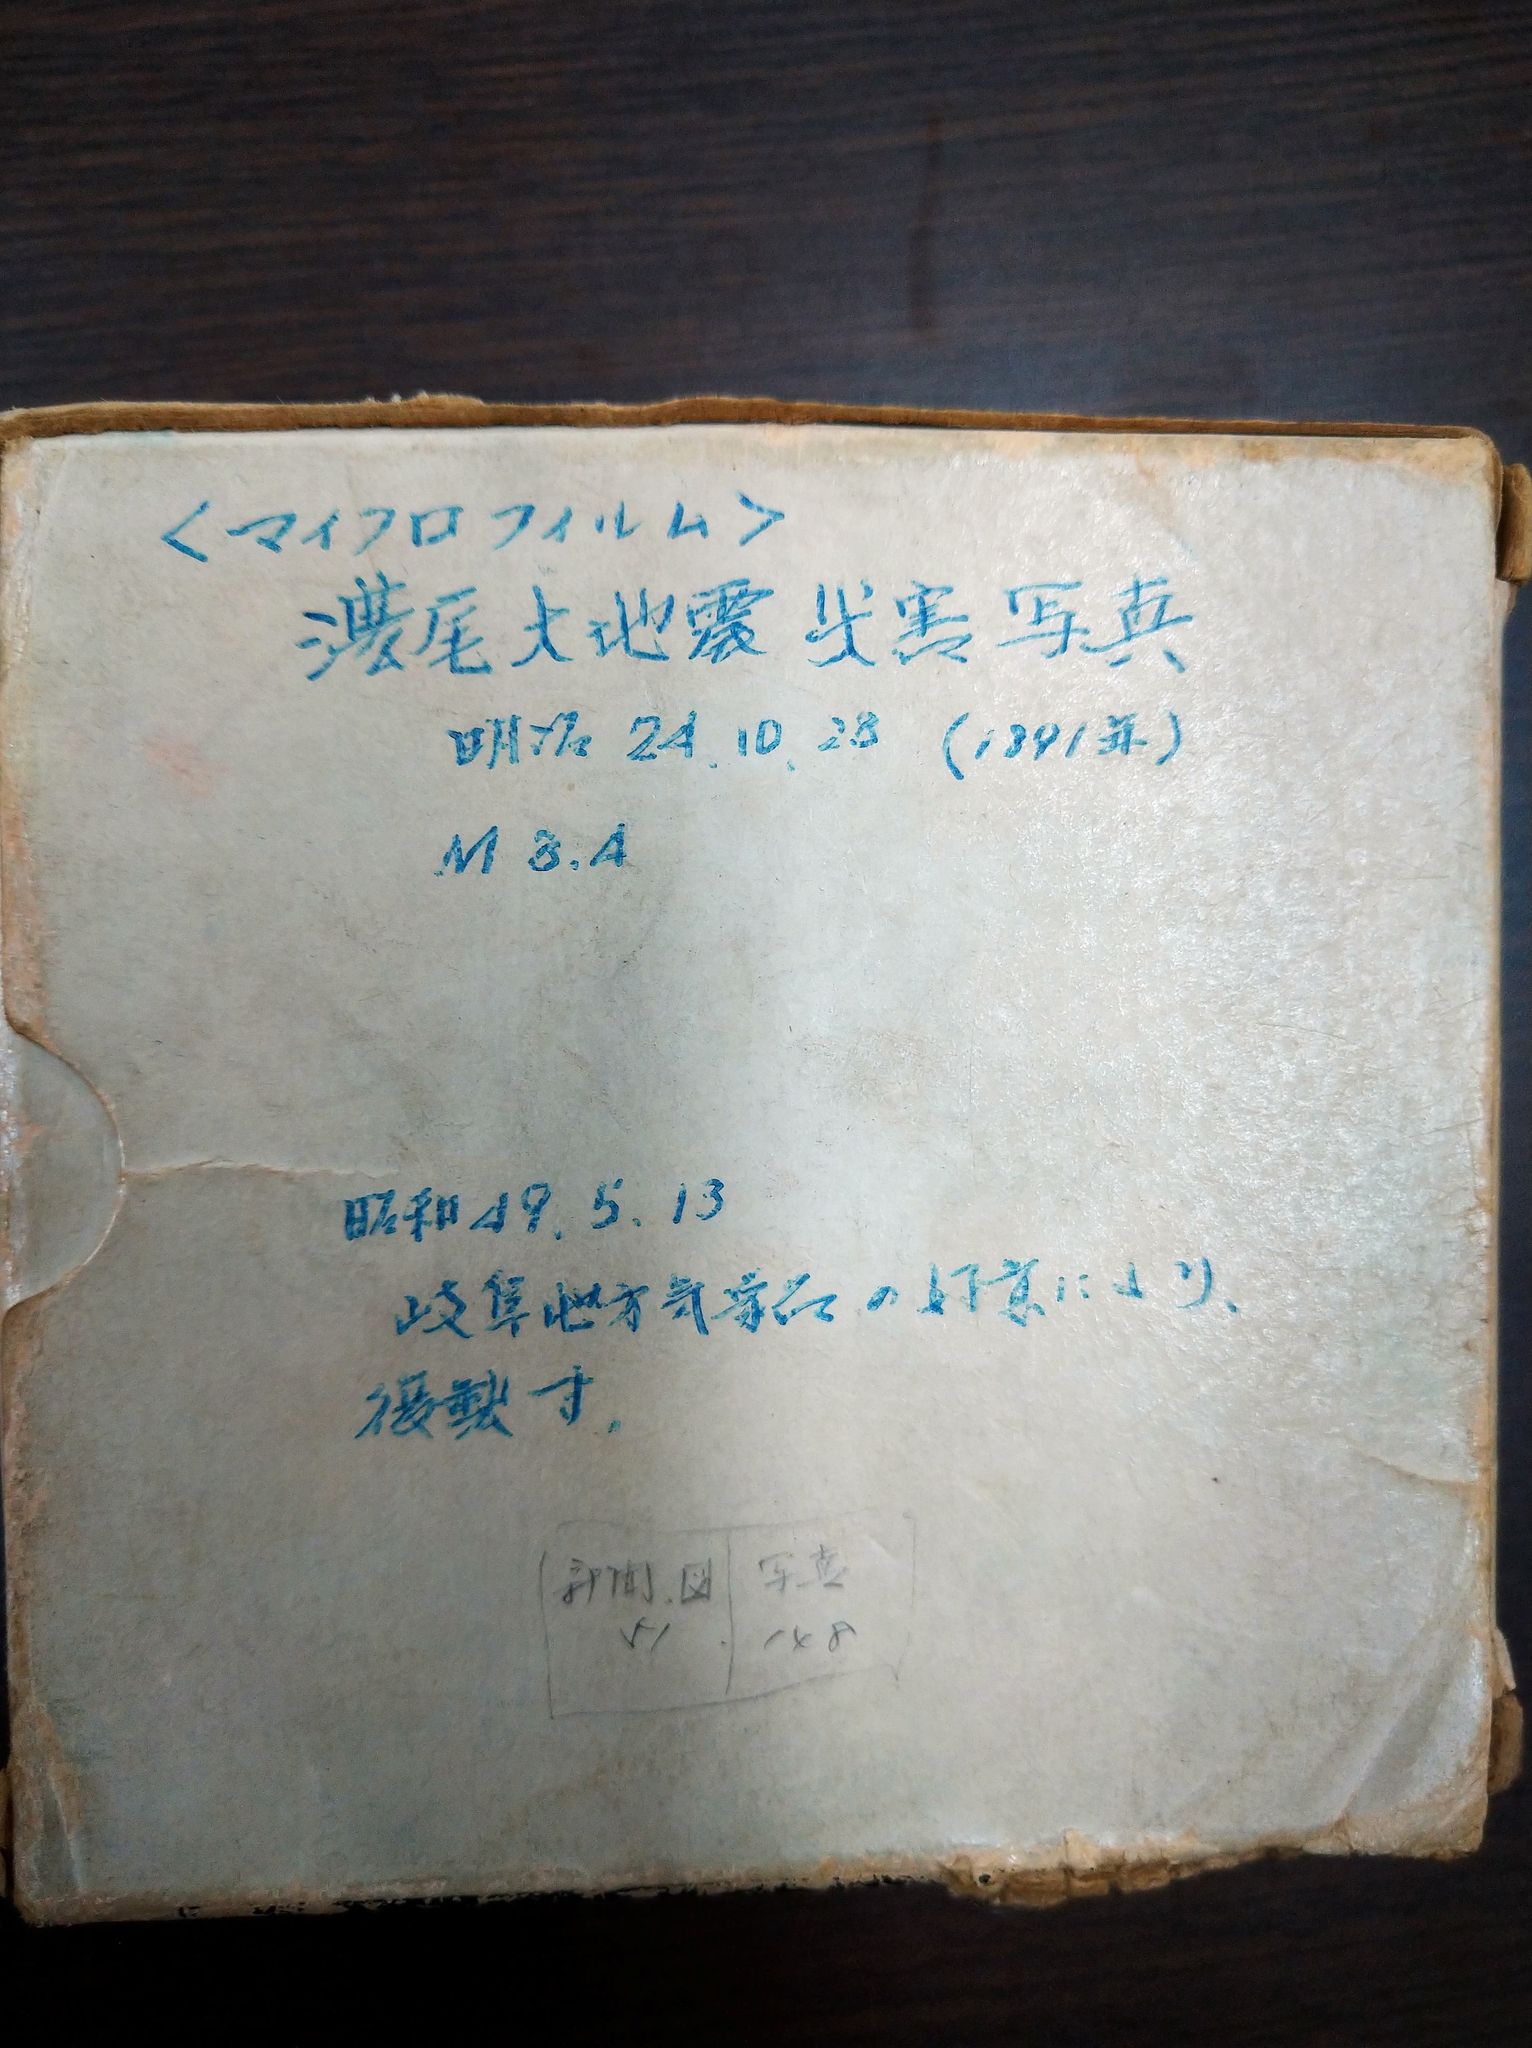 <マイクロフィルム>
濃尾大地震災害写真
明治24.10.28 (1891年)
M 8.4
昭和49.5.13
岐阜地方気象台の好意により、
複製す.
新聞.図 写真
51 148